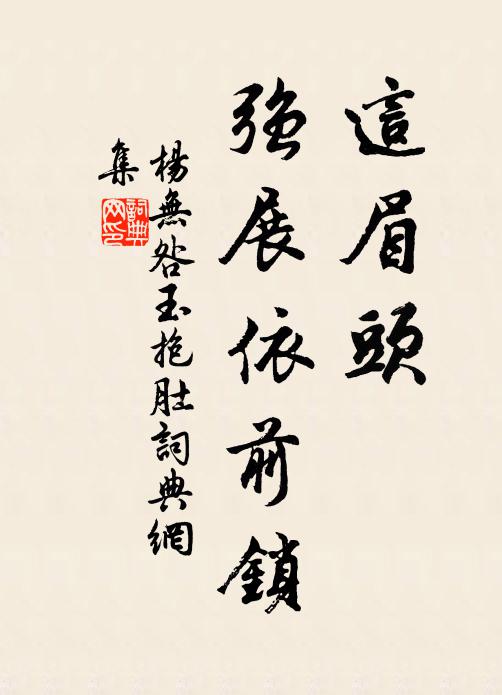 這眉頭
強展依前鎖
楊無咎玉抱肚詞典網
集
詞典
网印